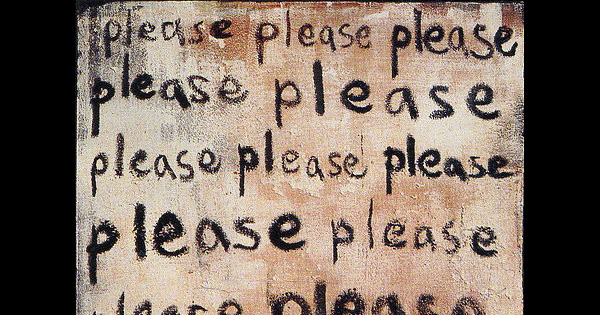 please please please
please please
please please please
please please
please please